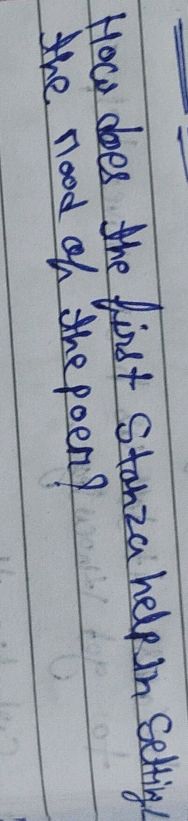 How does the first Stanza help in setting
the mood of the poem?